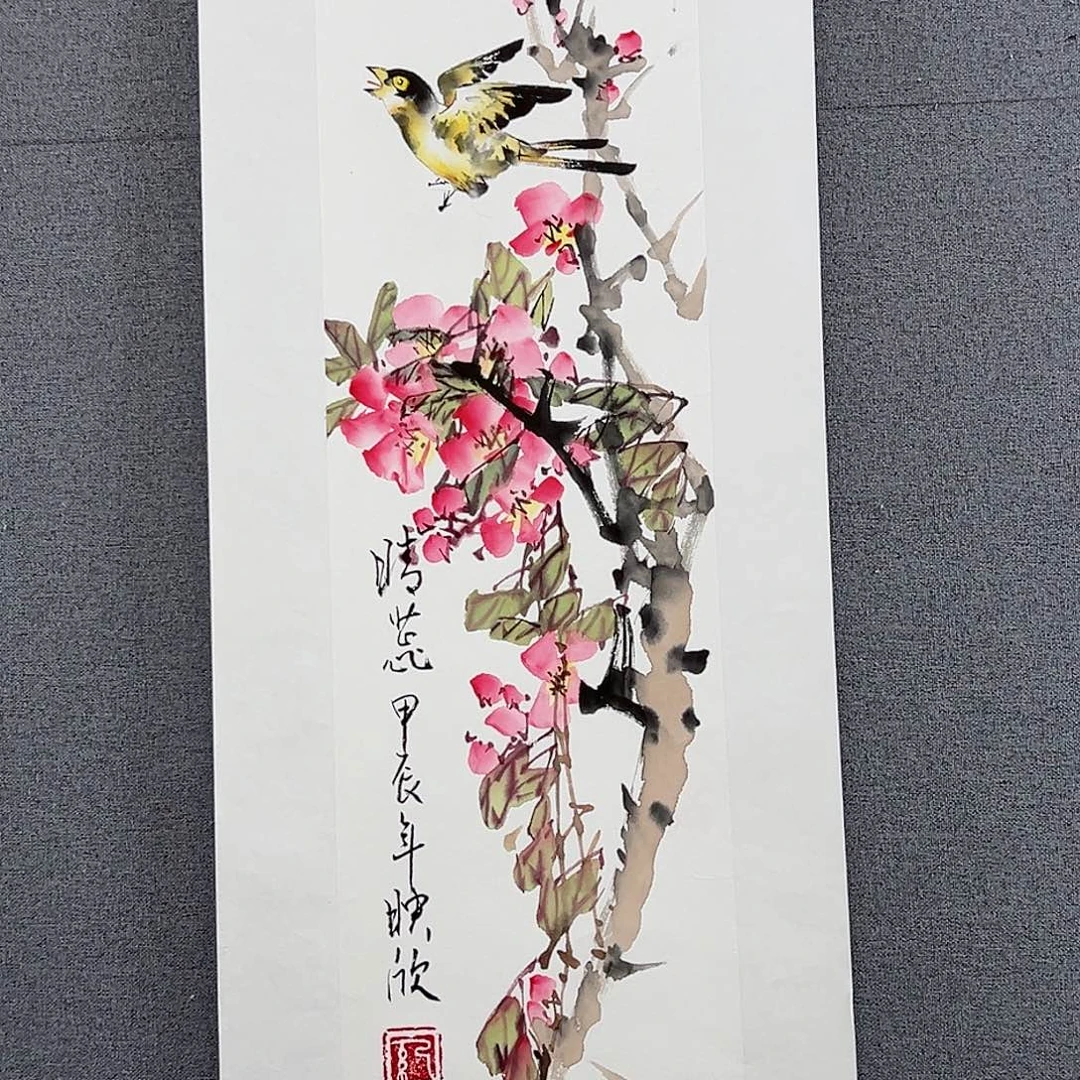 晴蕊 甲辰年 映欣